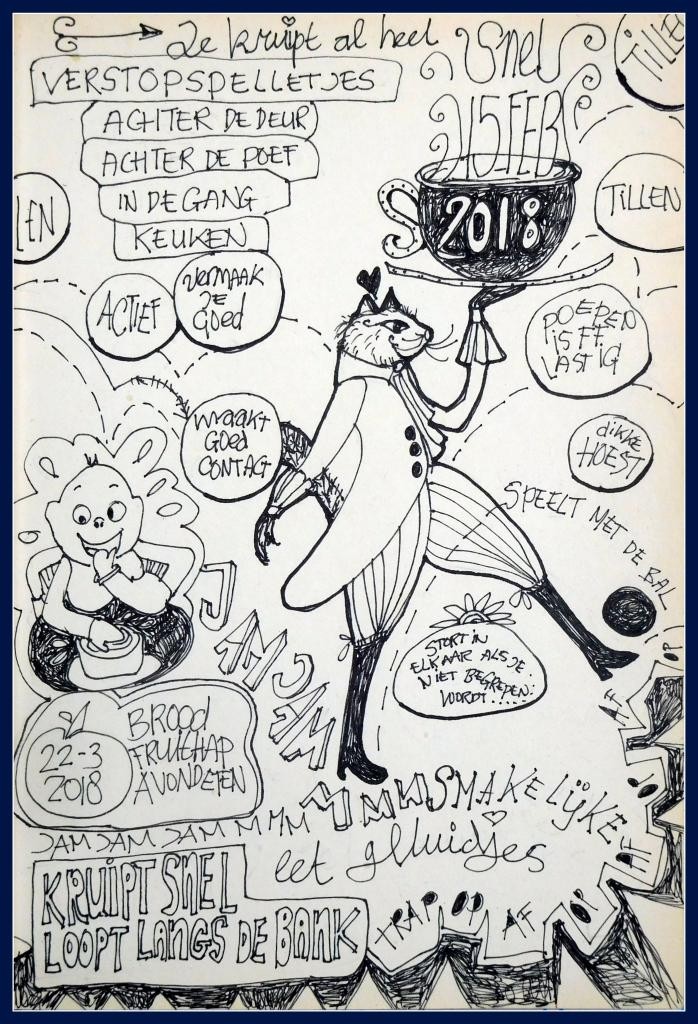 Je kruipt al heel
Snel
VERSTOPSPELLETJES
ACHTER DE DEUR
ACHTER DE POEF
IN DE GANG
KEUKEN
15 FEB
2018
TILLE
TILLEN
LEN
ACTIEF
VERMAAK
JE
Goed
POEPEN
IS FF
LASTIG
MAAKT
Goed
CONTACT
dikke
HOEST
SPEELT MET DE BAL
JAMJAM
STORT IN
ELKAAR ALS JE
NIET BEGREPEN
WORDT.....
22-3
2018
BROOD
FRUITHAP
AVONDETEN
JAM JAM JAM M MM M M M SMAKELIJKE
eet gelluidjes
KRUIPT SNEL
LOOPT LANGS DE BANK
TRAP OP AF OP AF OP AF OP